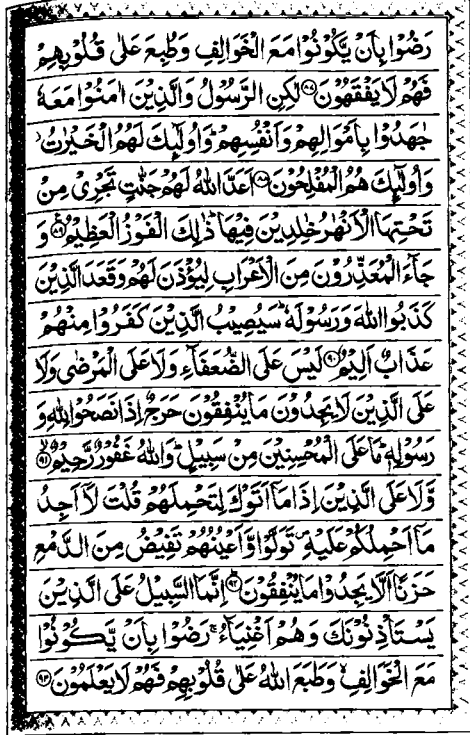 رَضُوۡا بِاَنۡ يَّكُوۡنُوۡا مَعَ الۡخَوَالِفِ وَطُبِعَ عَلٰى قُلُوۡبِهِمۡ
فَهُمۡ لَا يَفۡقَهُوۡنَ ﴿۸۷﴾ لٰكِنِ الرَّسُوۡلُ وَالَّذِيۡنَ اٰمَنُوۡا مَعَهٗ
جٰهَدُوۡا بِاَمۡوَالِهِمۡ وَاَنۡفُسِهِمۡ ؕ وَاُولٰٓٮِٕكَ لَهُمُ الۡخَيۡرٰتُ
وَاُولٰٓٮِٕكَ هُمُ الۡمُفۡلِحُوۡنَ ﴿۸۸﴾ اَعَدَّ اللّٰهُ لَهُمۡ جَنّٰتٍ تَجۡرِىۡ مِنۡ
تَحۡتِهَا الۡاَنۡهٰرُ خٰلِدِيۡنَ فِيۡهَا ؕ ذٰلِكَ الۡفَوۡزُ الۡعَظِيۡمُ ﴿۸۹﴾ وَ
جَآءَ الۡمُعَذِّرُوۡنَ مِنَ الۡاَعۡرَابِ لِيُؤۡذَنَ لَهُمۡ وَقَعَدَ الَّذِيۡنَ
كَذَبُوا اللّٰهَ وَرَسُوۡلَهٗ ؕ سَيُصِيۡبُ الَّذِيۡنَ كَفَرُوۡا مِنۡهُمۡ
عَذَابٌ اَلِيۡمٌ ﴿۹۰﴾ لَيۡسَ عَلَى الضُّعَفَآءِ وَلَا عَلَى الۡمَرۡضٰى وَلَا
عَلَى الَّذِيۡنَ لَا يَجِدُوۡنَ مَا يُنۡفِقُوۡنَ حَرَجٌ اِذَا نَصَحُوۡا لِلّٰهِ وَ
رَسُوۡلِهٖ ؕ مَا عَلَى الۡمُحۡسِنِيۡنَ مِنۡ سَبِيۡلٍ ؕ وَاللّٰهُ غَفُوۡرٌ رَّحِيۡمٌ ﴿۹۱﴾
وَّلَا عَلَى الَّذِيۡنَ اِذَا مَاۤ اَتَوۡكَ لِتَحۡمِلَهُمۡ قُلۡتَ لَاۤ اَجِدُ
مَاۤ اَحۡمِلُكُمۡ عَلَيۡهِ ۖ تَوَلَّوۡا وَّاَعۡيُنُهُمۡ تَفِيۡضُ مِنَ الدَّمۡعِ
حَزَنًا اَلَّا يَجِدُوۡا مَا يُنۡفِقُوۡنَ ﴿۹۲﴾ اِنَّمَا السَّبِيۡلُ عَلَى الَّذِيۡنَ
يَسۡتَاۡذِنُوۡنَكَ وَهُمۡ اَغۡنِيَآءُ ۚ رَضُوۡا بِاَنۡ يَّكُوۡنُوۡا
مَعَ الۡخَوَالِفِ ۙ وَطَبَعَ اللّٰهُ عَلٰى قُلُوۡبِهِمۡ فَهُمۡ لَا يَعۡلَمُوۡنَ ﴿۹۳﴾